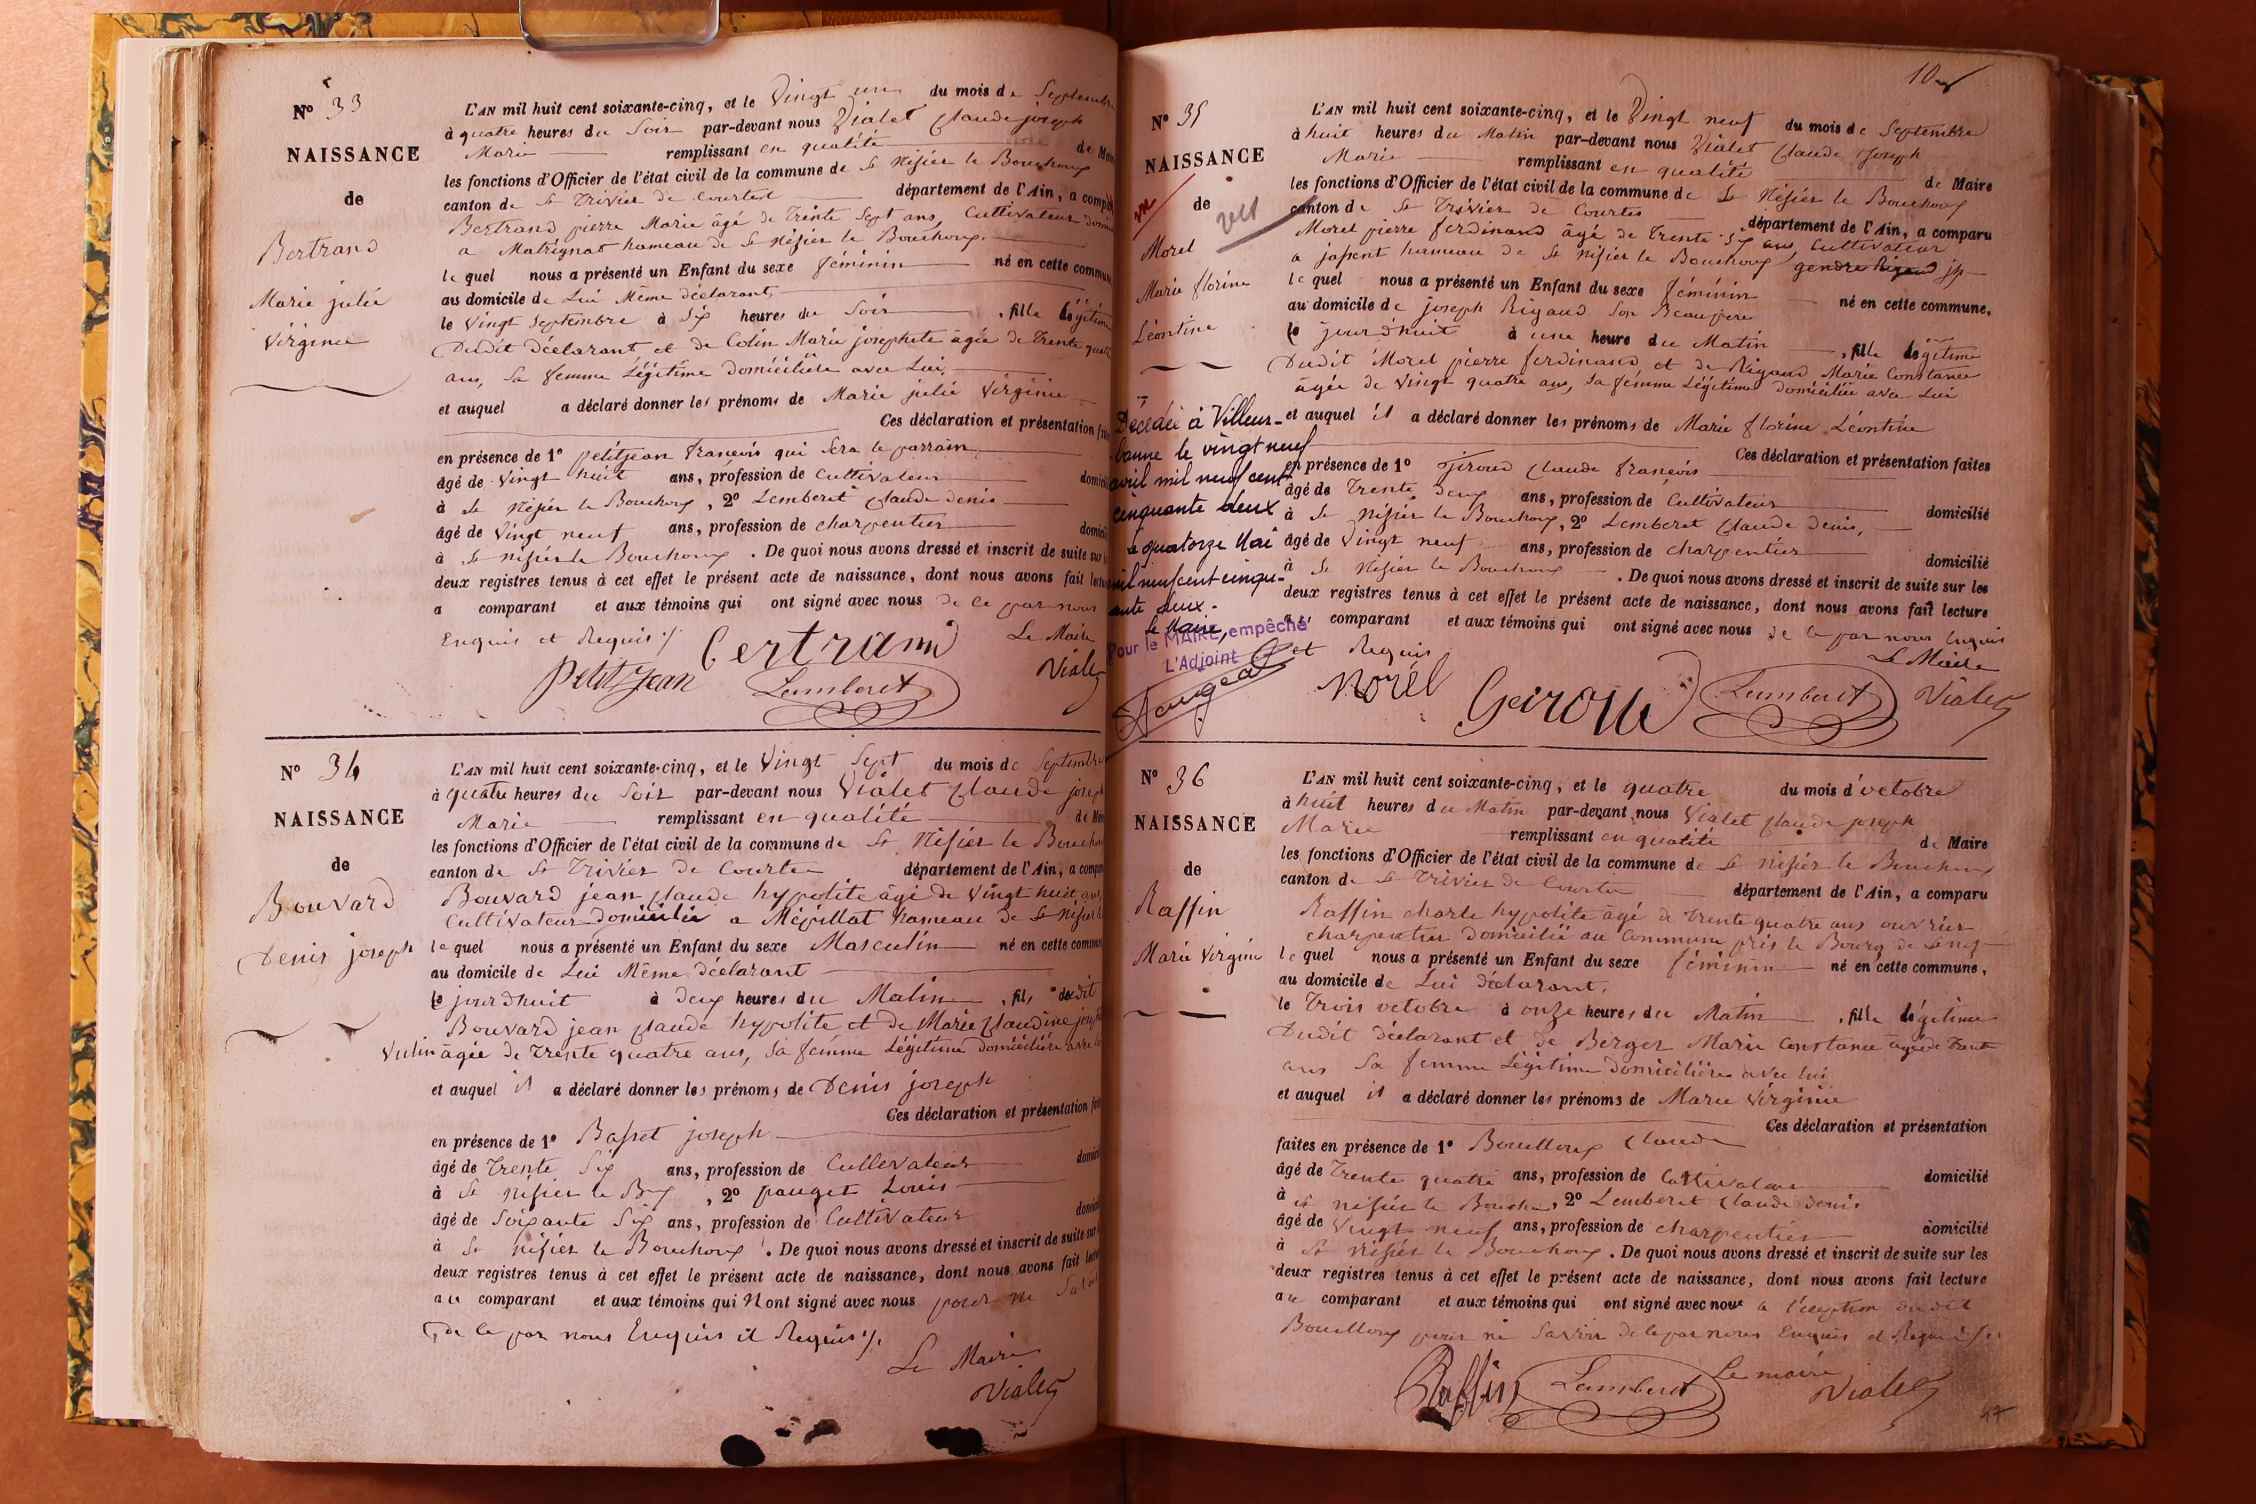 Nº 33
NAISSANCE
de
Bertrand
Marie julie
Virginie
L'AN mil huit cent soixante-cinq, et le Vingt un du mois de Septembre
à quatre heures du Soir par-devant nous Vialet Claude joseph
Marie remplissant en qualité de
les fonctions d'Officier de l'état civil de la commune de St Nisier le Bouchoux
canton de St Trivier de Courtes département de l'Ain, a
Bertrand pierre Marie âgé de Trente Sept ans, Cultivateur
a Matrignat hameau de St Nisier le Bouchoux.
lequel nous a présenté un Enfant du sexe féminin né en cette commune
au domicile de Lui Même déclarant,
le Vingt Septembre à Six heures du Soir , fille légitime
Dudit déclarant et de Colin Marie josephete âgée de Trente quatre
ans, Sa femme Légitime domiciliée avec Lui,
et auquel a déclaré donner les prénoms de Marie julie Virginie
Ces déclaration et présentation
en présence de 1º petitjean françois qui Sera le parrain
âgé de Vingt huit ans, profession de Cultivateur
à St Nisier le Bouchoux, 2º Lemberet Claude denis
âgé de Vingt neuf ans, profession de charpentier
à St nisier le Bouchoux. De quoi nous avons dressé et inscrit de suite sur
deux registres tenus à cet effet le présent acte de naissance, dont nous avons fait
a comparant et aux témoins qui ont signé avec nous de ce par nous
Enquis et Requis ./.
Le Maire
Bertrand
petitjean Lemberet Vialet
Nº 34
NAISSANCE
de
Bouvard
Denis joseph
L'AN mil huit cent soixante-cinq, et le Vingt Sept du mois de Septembre
à quatre heures du Soir par-devant nous Vialet Claude joseph
Marie remplissant en qualité de
les fonctions d'Officier de l'état civil de la commune de St Nisier le
canton de St Trivier de Courtes département de l'Ain, a
Bouvard jean Claude hypolite âgé de Vingt huit ans
Cultivateur domicilié a Mépillat hameau de St Nisier
lequel nous a présenté un Enfant du sexe Masculin né en cette commune
au domicile de Lui Même déclarant
le jourdhuit à deux heures du Matin , fils dudit
Bouvard jean Claude hypolite et de Marie Claudine
Vulin âgée de Trente quatre ans, Sa femme Légitime domiciliée avec
et auquel il a déclaré donner les prénoms de Denis joseph
Ces déclaration et présentation
en présence de 1º Basset joseph
âgé de Trente Six ans, profession de Cultivateur
à St Nisier le Bx, 2º pauget Louis
âgé de Soixante Six ans, profession de Cultivateur
à St Nisier le Bouchoux. De quoi nous avons dressé et inscrit de suite sur
deux registres tenus à cet effet le présent acte de naissance, dont nous avons fait
au comparant et aux témoins qui N ont signé avec nous pour ne
de ce par nous Enquis et Requis ./.
Le Maire
Vialet
10
Nº 35
NAISSANCE
de
Morel
Marie florine
Léontine
Décédée à Villeur-
banne le vingt neuf
avril mil neuf cent
cinquante deux
Le quatorze Mai
mil neuf cent cinqu-
ante deux.
Le Maire,
Pour le MAIRE empêché
L'Adjoint
L'AN mil huit cent soixante-cinq, et le Vingt neuf du mois de Septembre
à huit heures du Matin par-devant nous Vialet Claude Joseph
Marie remplissant en qualité de Maire
les fonctions d'Officier de l'état civil de la commune de St Nisier le Bouchoux
canton de St Trivier de Courtes département de l'Ain, a comparu
Morel pierre ferdinand âgé de Trente Six ans, Cultivateur
a hameau de St Nisier le Bouchoux
lequel nous a présenté un Enfant du sexe féminin né en cette commune,
au domicile de joseph Rigaud Son Beaupere
le jourdhuit à une heure du Matin , fille légitime
Dudit Morel pierre ferdinand et de Rigaud Marie Constance
âgée de Vingt quatre ans, Sa femme Légitime domiciliée avec Lui
et auquel il a déclaré donner les prénoms de Marie florine Léontine
Ces déclaration et présentation faites
en présence de 1º Giroud Claude françois
âgé de Trente deux ans, profession de Cultivateur domicilié
à St Nisier le Bouchoux, 2º Lemberet Claude denis,
âgé de Vingt neuf ans, profession de charpentier domicilié
à St Nisier le Bouchoux. De quoi nous avons dressé et inscrit de suite sur les
deux registres tenus à cet effet le présent acte de naissance, dont nous avons fait lecture
comparant et aux témoins qui ont signé avec nous de ce par nous Enquis
et Requis
Le Maire
Morel Geiroud Lemberet Vialet
Nº 36
NAISSANCE
de
Raffin
Marie Virginie
L'AN mil huit cent soixante-cinq, et le quatre du mois d'octobre
à huit heures du Matin par-devant nous Vialet Claude joseph
Marie remplissant en qualité de Maire
les fonctions d'Officier de l'état civil de la commune de St Nisier le Bouchoux
canton de St Trivier de Courtes département de l'Ain, a comparu
Raffin charle hypolite âgé de Trente quatre ans ouvrier
charpentier domicilié au Commune près le Bourg de
lequel nous a présenté un Enfant du sexe féminin né en cette commune,
au domicile de Lui déclarant,
le Trois octobre à onze heures du Matin , fille légitime
Dudit déclarant et de Berger Marie Constance âgée de Trente
ans Sa femme Légitime domiciliée avec lui
et auquel il a déclaré donner les prénoms de Marie Virginie
Ces déclaration et présentation
faites en présence de 1º Bouilloux Claude
âgé de Trente quatre ans, profession de Cultivateur domicilié
à St nisier le Bouchoux, 2º Lemberet Claude denis
âgé de Vingt neuf ans, profession de charpentier domicilié
à St Nisier le Bouchoux. De quoi nous avons dressé et inscrit de suite sur les
deux registres tenus à cet effet le présent acte de naissance, dont nous avons fait lecture
au comparant et aux témoins qui ont signé avec nous a l'éxeption dudit
Bouilloux pour ne Savoir de ce par nous Enquis et Requis
Le maire
Raffin Lemberet Vialet
47